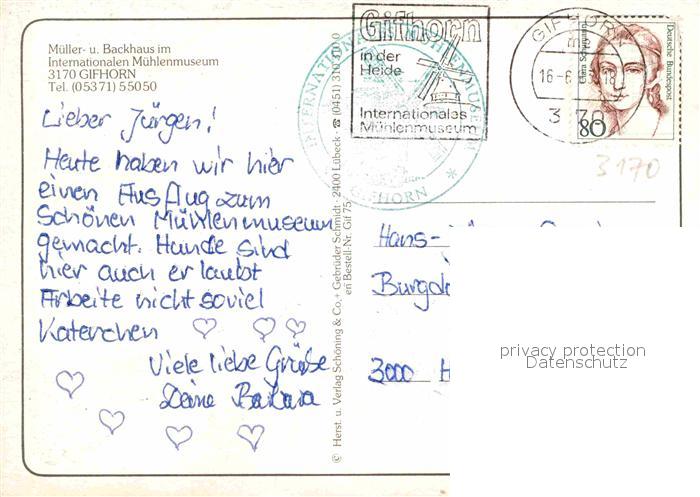 Müller- u. Backhaus im
Internationalen Mühlenmuseum
3170 GIFHORN
Tel. (05371) 55050
Lieber Jürgen!
Heute haben wir hier
einen Ausflug zum
Schönen Mühlenmuseum
gemacht. Hunde sind
hier auch erlaubt
Arbeite nicht soviel
Katerchen
Viele liebe Grüße
Deine Barbara
© Herst. u. Verlag Schöning & Co.+ Gebrüder Schmidt · 2400 Lübeck · ☎ (0451) 310310
Bestell-Nr. Gif 75
INTERNATIONALES MÜHLENMUSEUM
* GIFHORN *
Gifhorn
in der
Heide
Internationales
Mühlenmuseum
GIFHORN
16-6
-18
3170
Clara Schumann
Deutsche Bundespost
80
3170
Hans-
Burgd
3000 H
privacy protection
Datenschutz